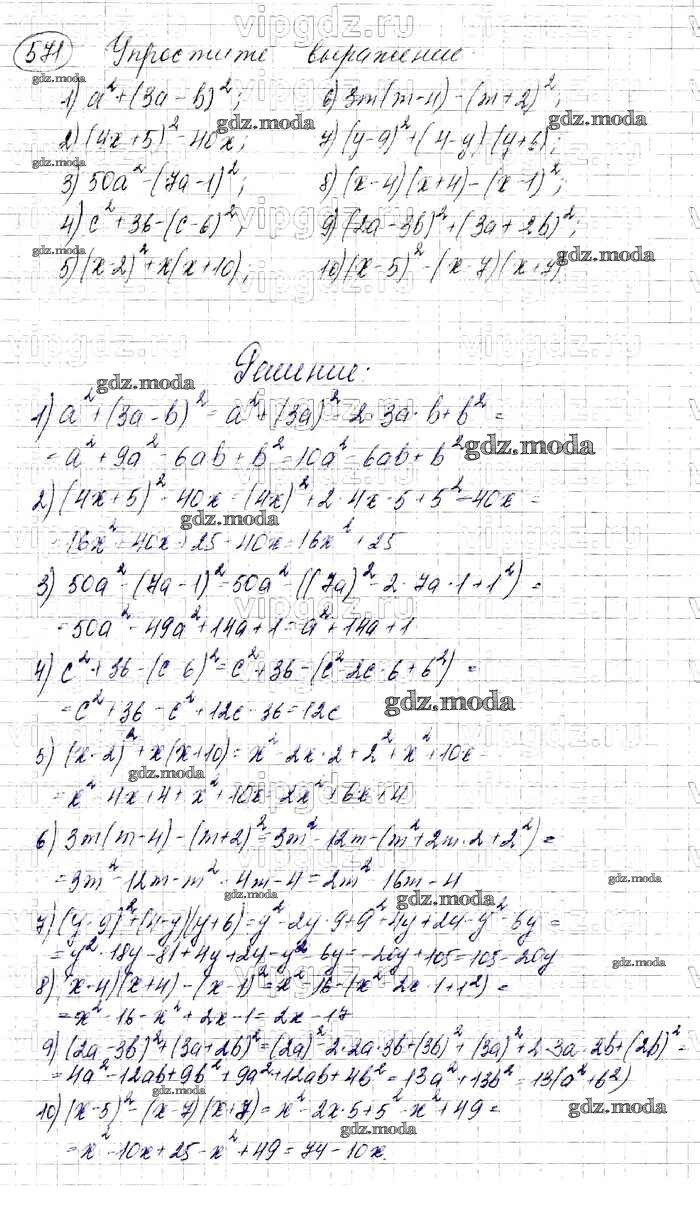 571 Упростите выражение.
1) a² + (3a - b)²; 6) 3m(m-4) - (m+2)²;
2) (4x+5)² - 40x; 7) (y-9)² + (4-y)(y+6);
3) 50a² - (7a-1)²; 8) (x-4)(x+4) - (x-1)²;
4) c² + 36 - (c-6)²; 9) (2a-3b)² + (3a+2b)²;
5) (x-2)² + x(x+10); 10) (x-5)² - (x-7)(x+7);
Решение.
1) a² + (3a-b)² = a² + (3a)² - 2·3a·b + b² =
= a² + 9a² - 6ab + b² = 10a² - 6ab + b²
2) (4x+5)² - 40x = (4x)² + 2·4x·5 + 5² - 40x =
= 16x² + 40x + 25 - 40x = 16x² + 25
3) 50a² - (7a-1)² = 50a² - ((7a)² - 2·7a·1 + 1²) =
= 50a² - 49a² + 14a + 1 = a² + 14a + 1
4) c² + 36 - (c-6)² = c² + 36 - (c² - 2c·6 + 6²) =
= c² + 36 - c² + 12c - 36 = 12c
5) (x-2)² + x(x+10) = x² - 2x·2 + 2² + x² + 10x =
= x² - 4x + 4 + x² + 10x = 2x² + 6x + 4
6) 3m(m-4) - (m+2)² = 3m² - 12m - (m² + 2m·2 + 2²) =
= 3m² - 12m - m² - 4m - 4 = 2m² - 16m - 4
7) (y-9)² + (4-y)(y+6) = y² - 2y·9 + 9² + 4y + 24 - y² - 6y =
= y² - 18y - 81 + 4y + 24 - y² - 6y = -20y + 105 = 105 - 20y
8) (x-4)(x+4) - (x-1)² = x² - 16 - (x² - 2x·1 + 1²) =
= x² - 16 - x² + 2x - 1 = 2x - 17
9) (2a-3b)² + (3a+2b)² = (2a)² - 2·2a·3b + (3b)² + (3a)² + 2·3a·2b + (2b)² =
= 4a² - 12ab + 9b² + 9a² + 12ab + 4b² = 13a² + 13b² = 13(a² + b²)
10) (x-5)² - (x-7)(x+7) = x² - 2x·5 + 5² - x² + 49 =
= x² - 10x + 25 - x² + 49 = 74 - 10x.
vipgdz.ru
gdz.moda